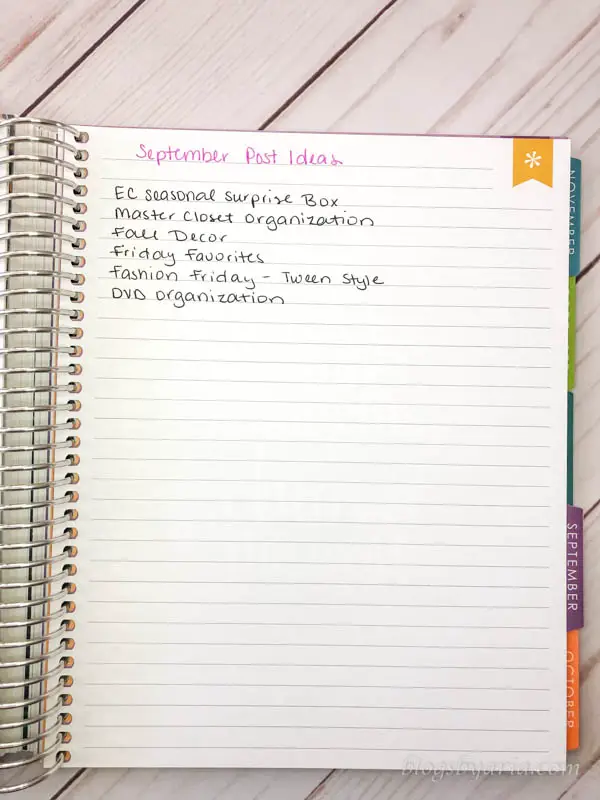 September Post Ideas
EC Seasonal Surprise Box
Master Closet Organization
Fall Decor
Friday Favorites
Fashion Friday - Tween Style
DVD Organization
*
NOVEMBER
SEPTEMBER
OCTOBER
blogsbyaria.com